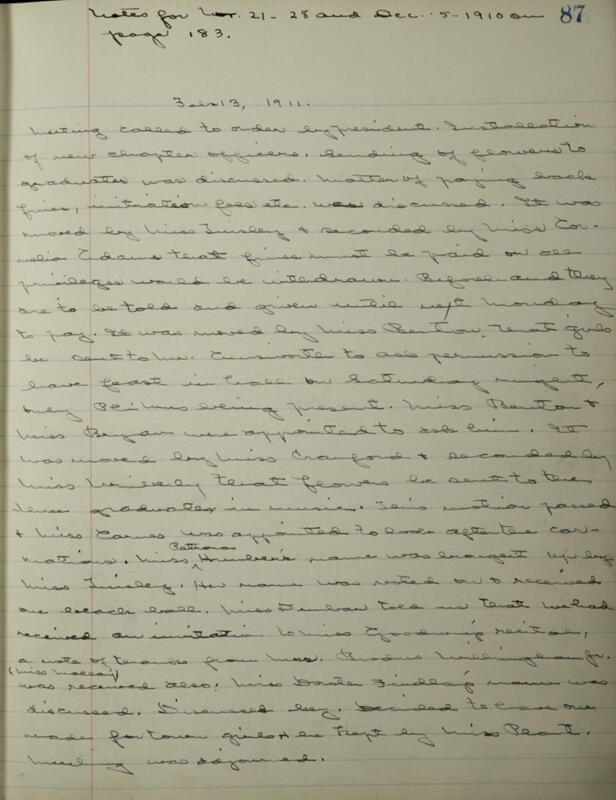 Notes for Nov. 21-28 and Dec. 5-1910 on 87
page 183.
Feb 13, 1911.
Meeting called to order by president. Installation
of new chapter officers. Sending of flowers to
graduates was discussed. Matter of paying back
fines, initiation fees etc. was discussed. It was
moved by Miss Tinsley & seconded by Miss Cor-
nelia Adams that fines must be paid or all
privileges would be withdrawn. Before and they
are to be told and given until next Monday
to pay. It was moved by Miss Benton that girls
be sent to Mr. to ask permission to
have feast in hall on Saturday night,
only Phi Mus being present. Miss Benton &
Miss Bryan were appointed to ask him. It
was moved by Miss Crawford & seconded by
Miss that flowers be sent to the
three graduates in music. This motion passed
& Miss was appointed to look after the car-
nations. Miss name was brought up by
Miss Tinsley. Her name was voted on & received
one black ball. Miss Dunbar told us that we had
received an invitation to Miss Goodwin's recital,
a note of thanks from Mrs. Brodus Willingham Jr.
was received also. Miss Findlay's name was
discussed. Discussed key. Decided to have one
made for town girls & be kept by Miss Plant.
Meeting was adjourned.